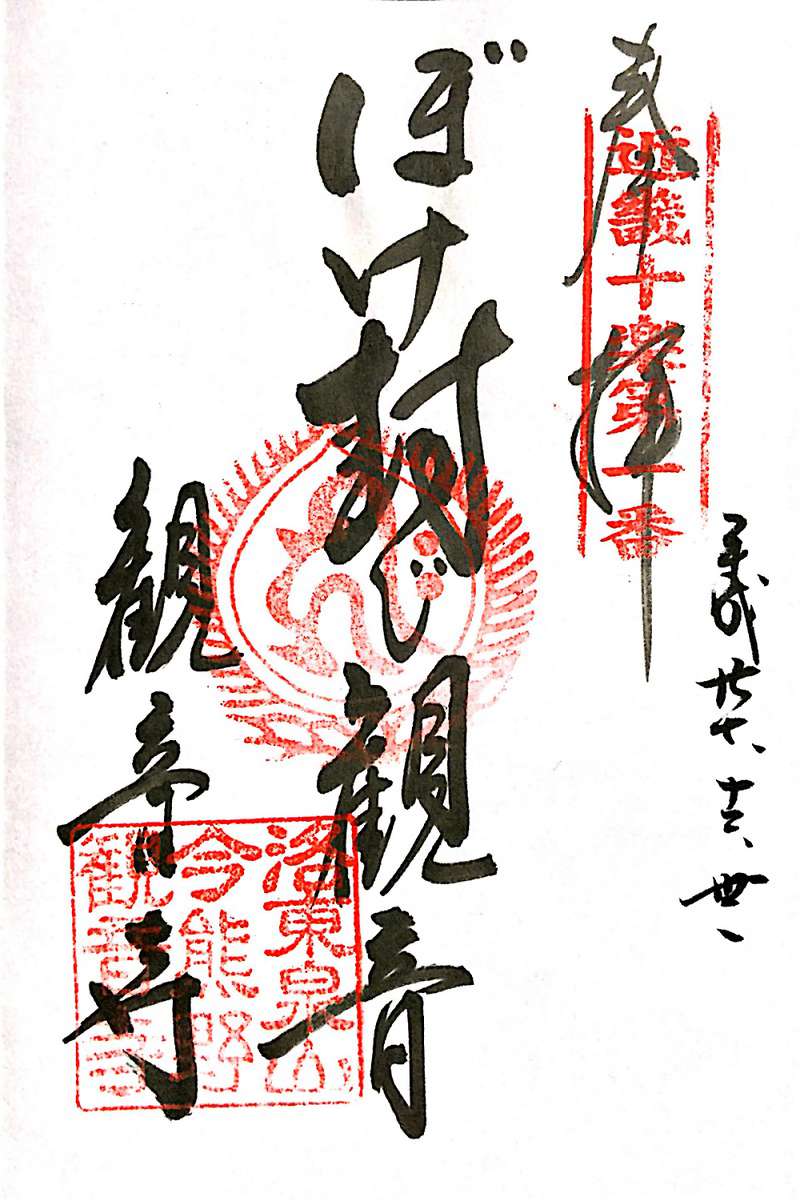 平成廿七
奉拝
近畿十楽第一番
ぼけ封じ観音
観音寺
洛東泉山
今熊野
観音寺